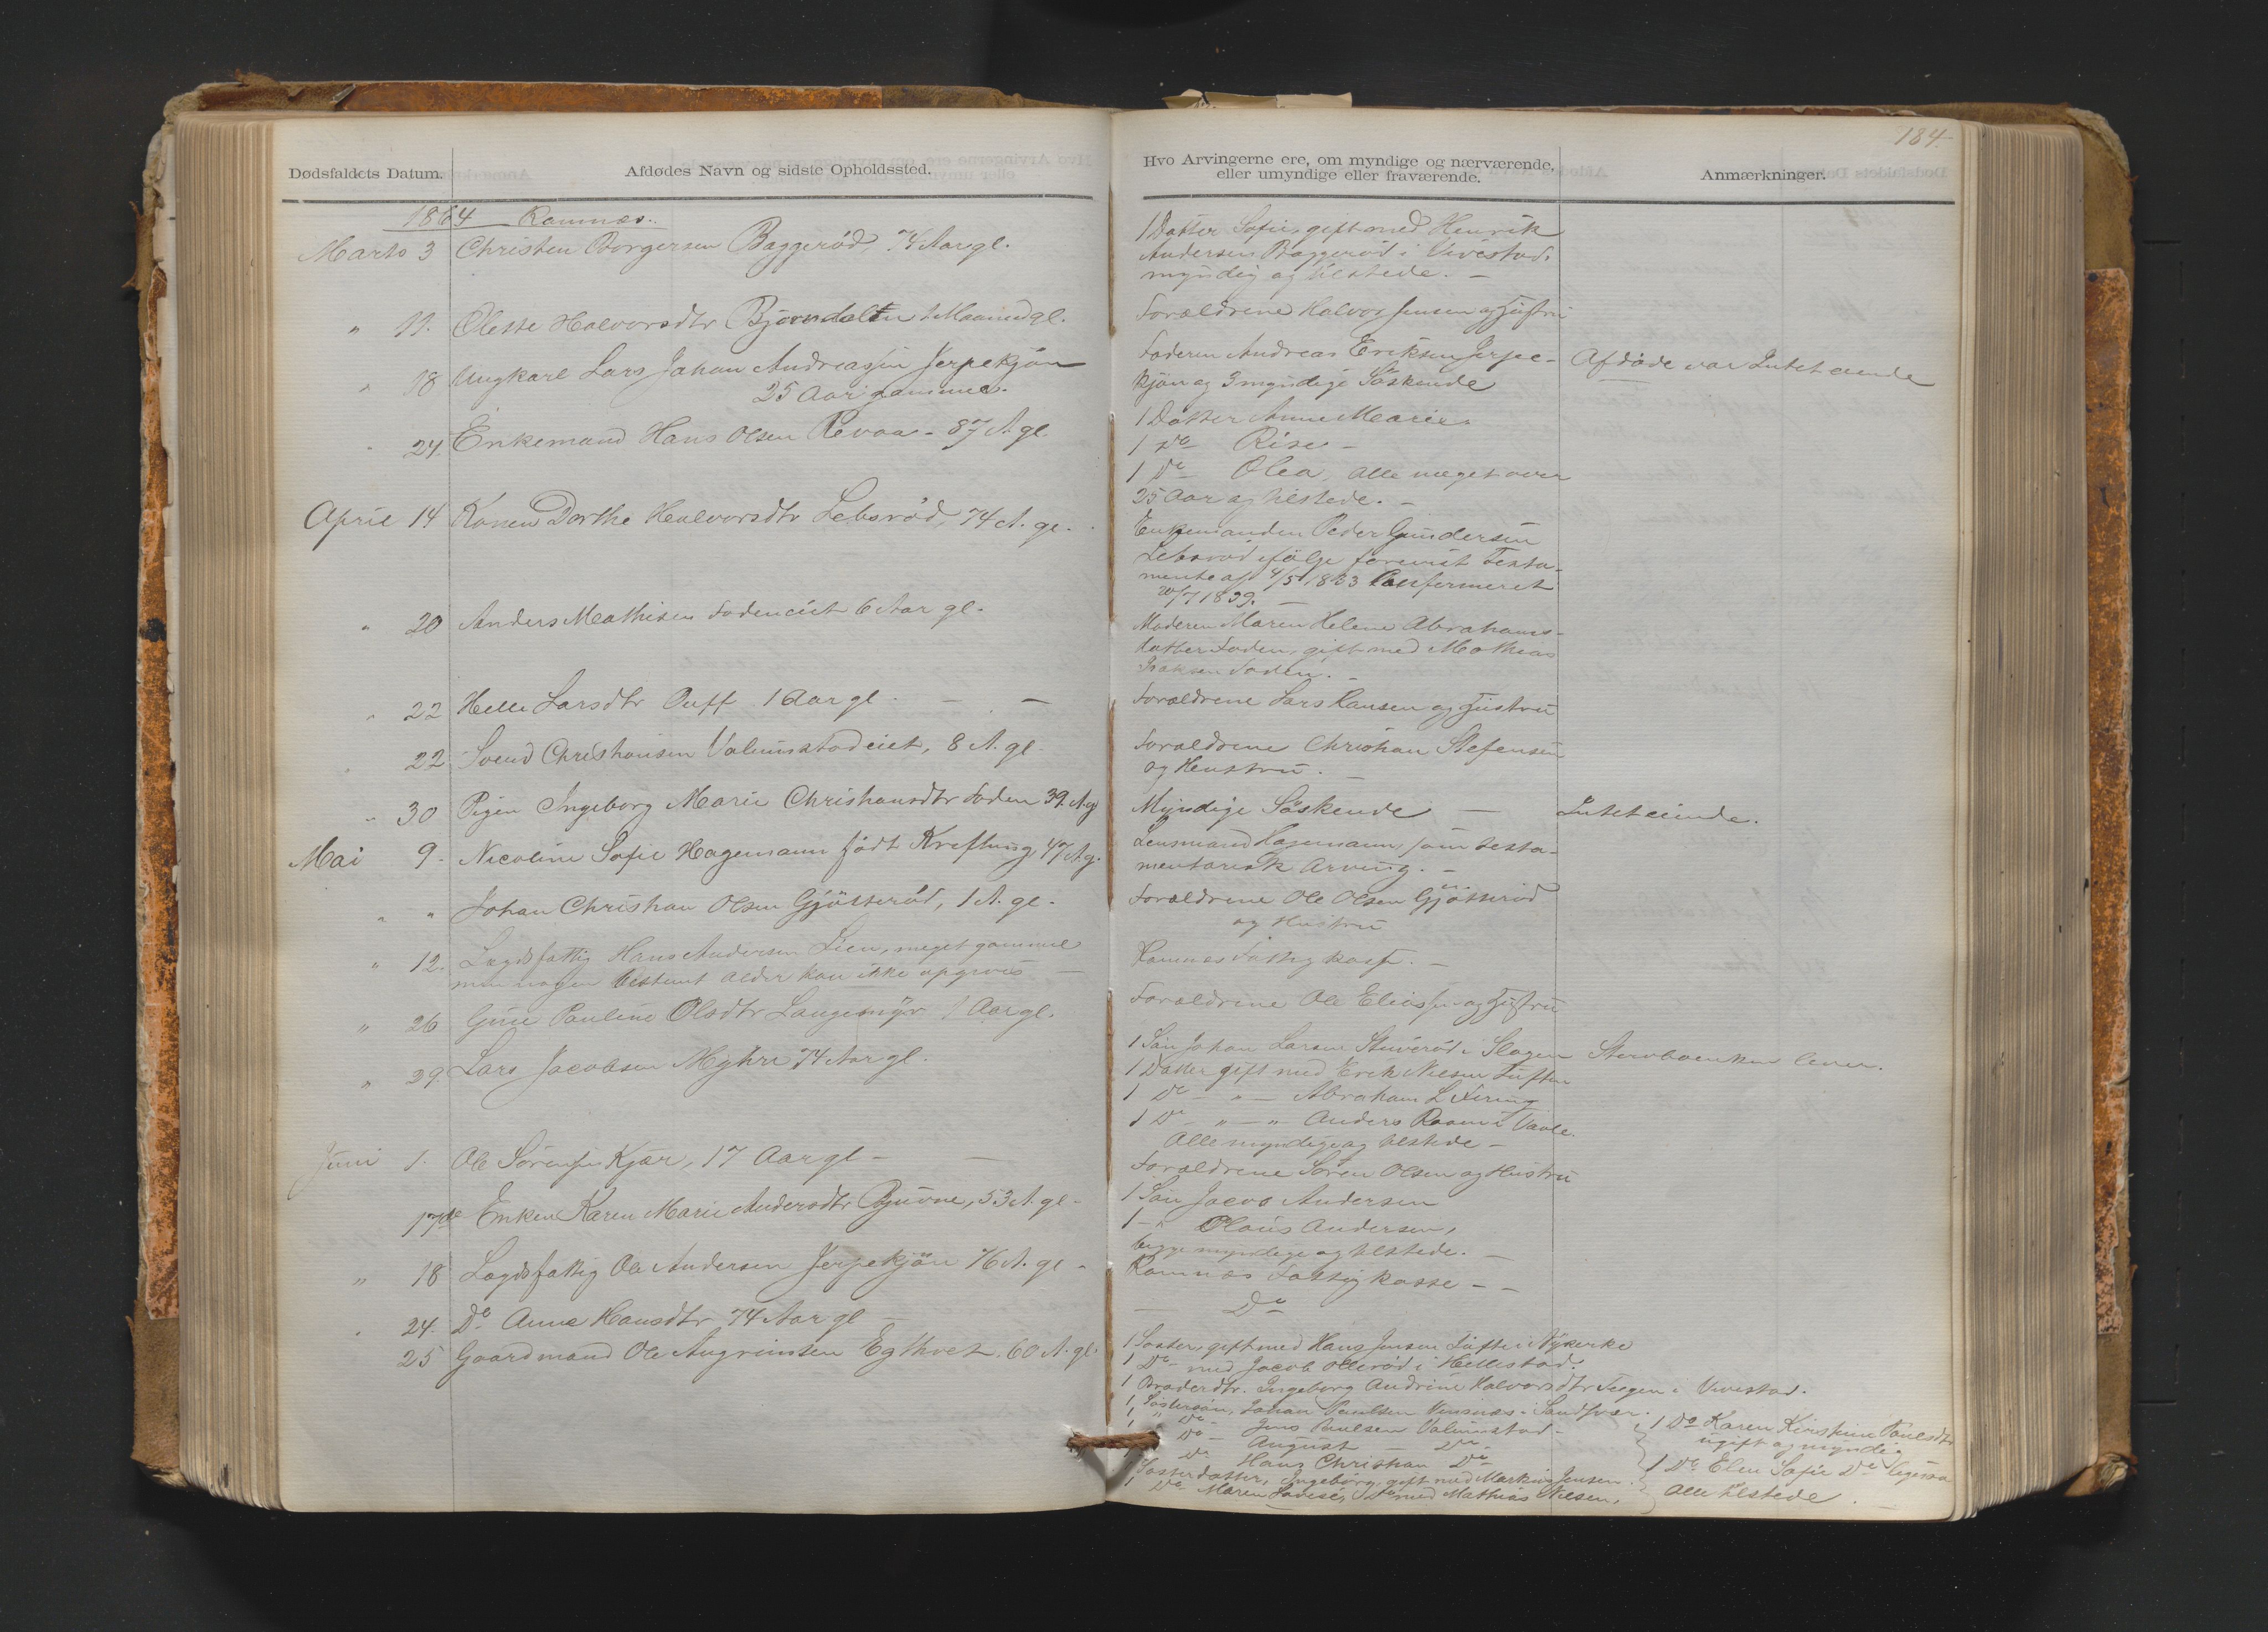 184.
Dødsfaldets Datum.
Afdødes Navn og sidste Opholdssted.
1864 Ramnæs.
Marts 3 Christen Borgersen Baggerød, 74 Aar gl.
" 11. Olette Halvorsdtr Bjørndalen 1 Maaned gl.
" 18 Ungkarl Lars Johan Andreassen Jerpekjøn
25 Aar gammel.
" 24. Enkemand Hans Olsen Revaa - 87 A. gl.
April 14 Konen Dorthe Halvorsdtr Lebsrød, 74 A. gl.
" 20 Anders Mathisen Fodeneiet 6 Aar gl.
" 22 Helle Larsdtr Ruff 1 Aar gl. — —
" 22 Svend Christiansen Valumstadeiet, 8 A. gl.
" 30 Pigen Ingeborg Marie Christiansdtr Foden 39. A. g
Mai 9. Nicoline Sofie Hagemann født Krefting, 47 A. g.
" " Johan Christian Olsen Gjøtterød, 1 A. gl.
" 12. Lægdsfattig Hans Andersen Lien, meget gammel
men nogen bestemt alder kan ikke opgives —
" 26 Guri Pauline Olsdtr Langemyr 1 Aar gl.
" 29. Lars Jacobsen Myhre 74 Aar gl.
Juni 1. Ole Sørensen Kjær, 17 Aar gl — —
17de Enken Karen Marie Andersdtr Bjuvne, 53 A. gl -
" 18 Lægdsfattig Ole Andersen Jerpekjøn 76 A. gl -
" 24. Do Anne Hansdtr 74 Aar gl —
25 Gaardmand Ole Angrimsen Egthvet. 60 A. gl.
Hvo Arvingerne ere, om myndige og nærværende,
eller umyndige eller fraværende.
Anmærkninger.
1 Datter Sofie, gift med Henrik
Andersen Baggerød i Vivestad,
myndig og tilstede. —
Forældrene Halvor Jensen og Hustru
Faderen Andreas Eriksen Jerpe-
kjøn og 3 myndige Søskende
Afdøde var Intet eiende
1 Datter Anne Marie
1 Do Rise —
1 Do Olea, alle meget over
25 Aar og tilstede. —
Enkemanden Peder Gundersen
Lebsrød ifølge forevist Testa-
mente af 4/5 1833 Confirmeret
20/7 1839. —
Moderen Maren Helene Abrahams-
datter Foden, gift med Mathias
Isaksen Foden. —
Forældrene Lars Hansen og Hustru
Forældrene Christian Stefensen
og Hustru. —
Myndige Søskende — Intet eiende.
Lensmand Hagemann, som testa-
mentarisk Arving. —
Forældrene Ole Olsen Gjøtterød
og Hustru
Ramnes Fattigkasse. —
Forældrene Ole Eliassen og Hustru
1 Søn Johan Larsen Stuverød i Slagen Stervboenken lever.
1 Datter gift med Erik Nielsen Tuften
1 Do — " — Abraham L Firing
1 Do — " — " Anders Raam i Vaale.
Alle myndige og tilstede —
Forældrene Søren Olsen og Hustru
1 Søn Jacob Andersen
1 - " Olaus Andersen,
begge myndige og tilstede. —
Ramnæs Fattigkasse — —
— Do
1 Søster, gift med Hans Jensen Tufte i Nykirke
1 Do med Jacob Ollerød i Hillestad.
1 Broderdtr. Ingeborg Andrine Halvorsdtr Teigen i Vivestad.
1 Søstersøn, Johan Paulsen i Sandsvær.
1 " Do - Jens Paulsen Valumstad -
1 " Do - August — Do -
Do Hans Christian Do
Søsterdatter, Ingeborg, gift med Markus Jensen.
1 Do Maren Lovise, Do med Mathias Nilsen,
1 Do Karen Kirstine Paulsdtr
ugift og myndig
1 Do Elen Sofie Do ligesaa
Alle tilstede. —